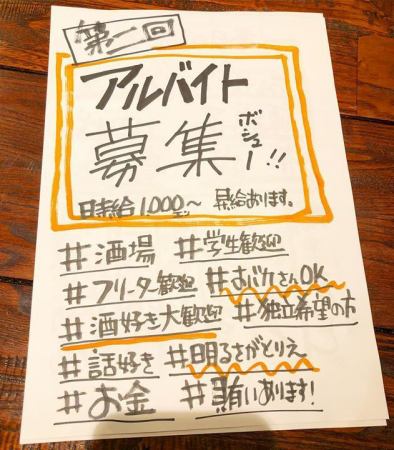 第二回
アルバイト
募集ボシュー!!
時給1,000エン〜 昇給あります。
#酒場 #学生歓迎
#フリーター歓迎 #おバカさんOK
#酒好き大歓迎 #独立希望の方
#話好き #明るさがとりえ
#お金 #賄いあります!